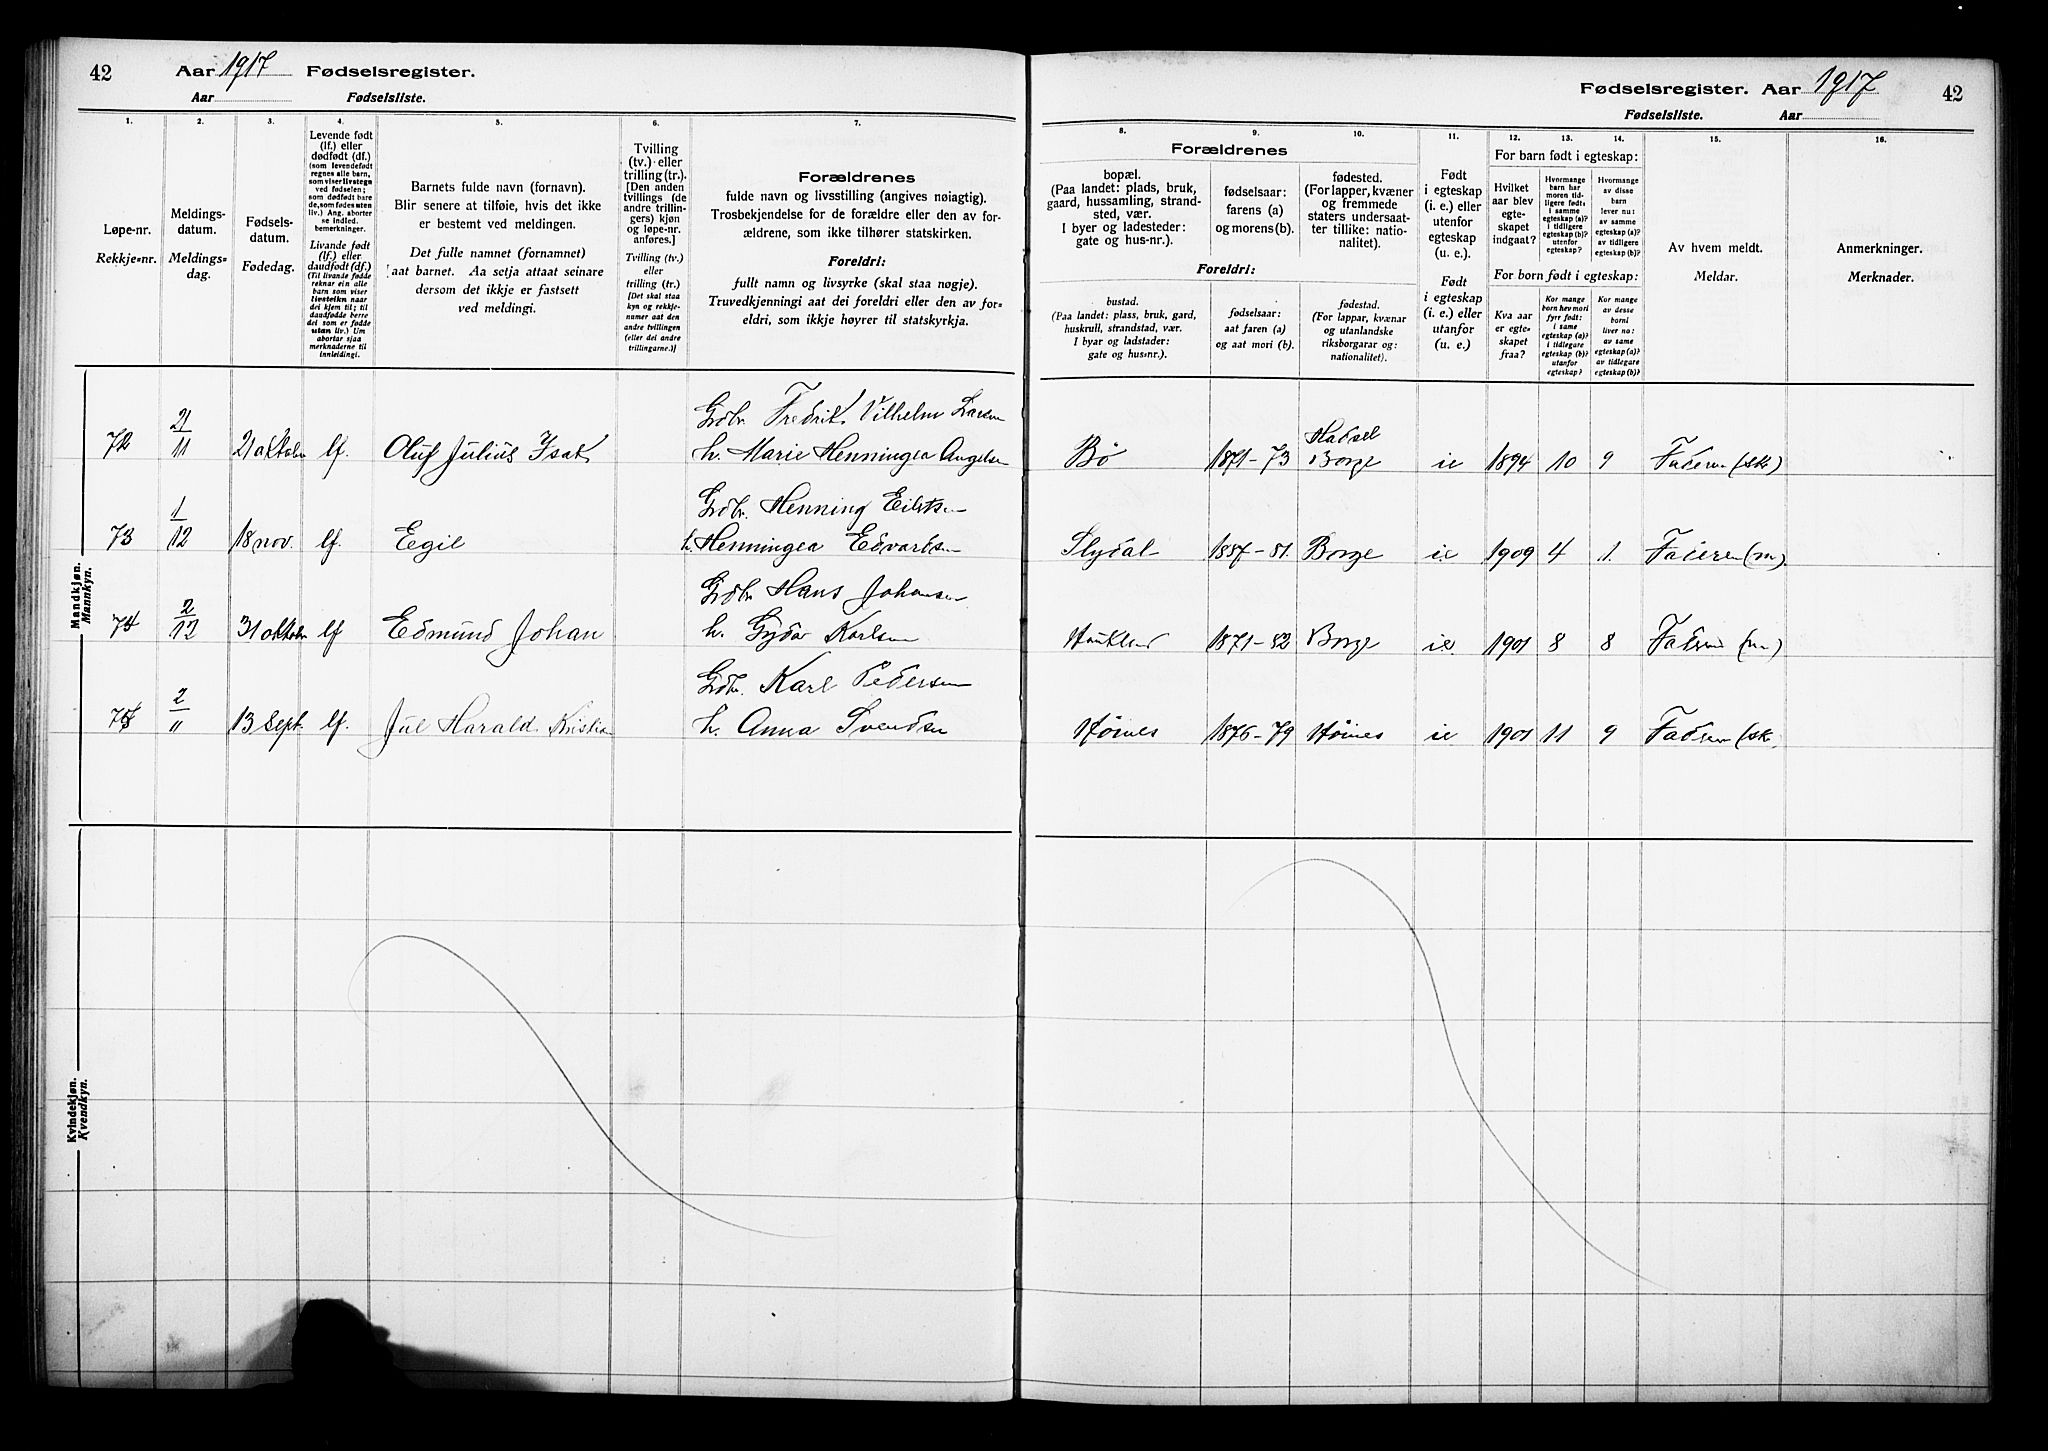 42
Aar 1917 Fødselsregister.
Aar Fødselsliste.
1. 2. 3. 4. 5. 6. 7.
Løpe-nr.
Rekkje-nr.
Meldings-
datum.
Meldings-
dag.
Fødsels-
datum.
Fødedag.
Levende født
(lf.) eller
dødfødt (df.)
(som levendefødt
regnes alle barn,
som viser livstegn
ved fødselen;
som dødfødt bare
de, som fødes uten
liv.) Ang. aborter
se indled.
bemerkninger.
Livande født
(lf.) eller
daudfødt (df.)
(Til livande fødde
reknar ein alle
barn som viser
livsteikn naar
dei kjem til; til
daudfødde berre
dei som er fødde
utan liv.) Um
abortar sjaa
merknaderne til
innleidingi.
Barnets fulde navn (fornavn).
Blir senere at tilføie, hvis det ikke
er bestemt ved meldingen.
Det fulle namnet (fornamnet)
aat barnet. Aa setja attaat seinare
dersom det ikkje er fastsett
ved meldingi.
Tvilling
(tv.) eller
trilling (tr.).
[Den anden
tvillings (de
andre trillin-
gers) kjøn
og løpe-nr.
anføres.]
Tvilling (tv.)
eller
trilling (tr.)
[Det skal staa
kyn og rekkje-
numer aat den
andre tvillingen
(eller dei andre
trillingarne.)]
Forældrenes
fulde navn og livsstilling (angives nøiagtig).
Trosbekjendelse for de forældre eller den av for-
ældrene, som ikke tilhører statskirken.
Foreldri:
fullt namn og livsyrke (skal staa nøgje).
Truvedkjenningi aat dei foreldri eller den av for-
eldri, som ikkje høyrer til statskyrkja.
Mandkjøn.
Mannkyn.
Gdbr. Fredrik Vilhelm Larsen
72 21/11 21 oktober lf. Oluf Julius Isak h. Marie Henningea Angelsen
Gdbr. Henning Eilertsen
73 1/12 18 nov. lf. Egil h. Henningea Edvardsen
Gdbr. Hans Johansen
74 2/12 31 oktober lf Edmund Johan h. Gyda Karlsen
Gdbr. Karl Pedersen
75 2/" 13 Sept. lf. Jul Harald Kristian h. Anna Svendsen
Kvindekjøn.
Kvendkyn.
Fødselsregister. Aar 1917 42
Fødselsliste. Aar
8. 9. 10. 11. 12. 13. 14. 15. 16.
Forældrenes
bopæl.
(Paa landet: plads, bruk,
gaard, hussamling, strand-
sted, vær.
I byer og ladesteder:
gate og hus-nr.).
fødselsaar:
farens (a)
og morens (b).
fødested.
(For lapper, kvæner
og fremmede
staters undersaat-
ter tillike: natio-
nalitet).
Foreldri:
bustad.
(Paa landet: plass, bruk, gard,
huskrull, strandstad, vær.
I byar og ladstader:
gate og hus-nr.).
fødselsaar:
aat faren (a)
og aat mori (b).
fødestad.
(For lappar, kvænar
og utanlandske
riksborgarar og:
nationalitet).
Født
i egteskap
(i. e.) eller
utenfor
egteskap
(u. e.).
Født
i egteskap
(i. e.) eller
utanfor
(u. e.).
For barn født i egteskap:
Hvilket
aar blev
egte-
skapet
indgaat?
Hvormange
barn har
moren tid-
ligere født:
i samme
egteskap (a)?
i tidligere
egteskap (b)?
utenfor
egteskap?
Hvormange
av disse
barn
lever nu:
av samme
egteskap (a)?
av tidligere
egteskap (b)?
For born født i egteskap:
Kva aar
er egte-
skapet
fraa?
Kor mange
born hev mori
fyrr født:
i same
egteskap (a)?
i tidlegare
egteskap (b)?
utanfor
egteskap?
Kor mange
av desse
borni
liver no:
av same
egteskap (a)?
av tidlegare
egteskap (b)?
Av hvem meldt.
Meldar.
Anmerkninger.
Merknader.
Hadsel
Bø 1871-73 Borge ie 1894 10 9 Faderen (sk)
1887-81. Borge i.e 1909 4 1. Faderen (m).
Haukland 1871-82 Borge ie. 1901 8 8 Faderen (m)
1876-79 ie 1901 11 9 Faderen (sk)